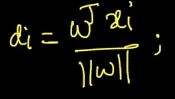 di = wᵀxi / ||w|| ;